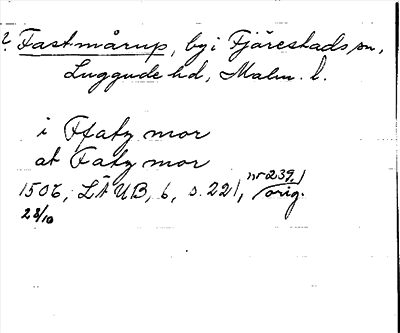 ? Fastmårup, by i Fjärestads sn,
Luggude hd, Malm. l.
i Ffaty mor
at Faty mor
1506, LÄUB, 6, s. 221, nr 239, orig.
28/10